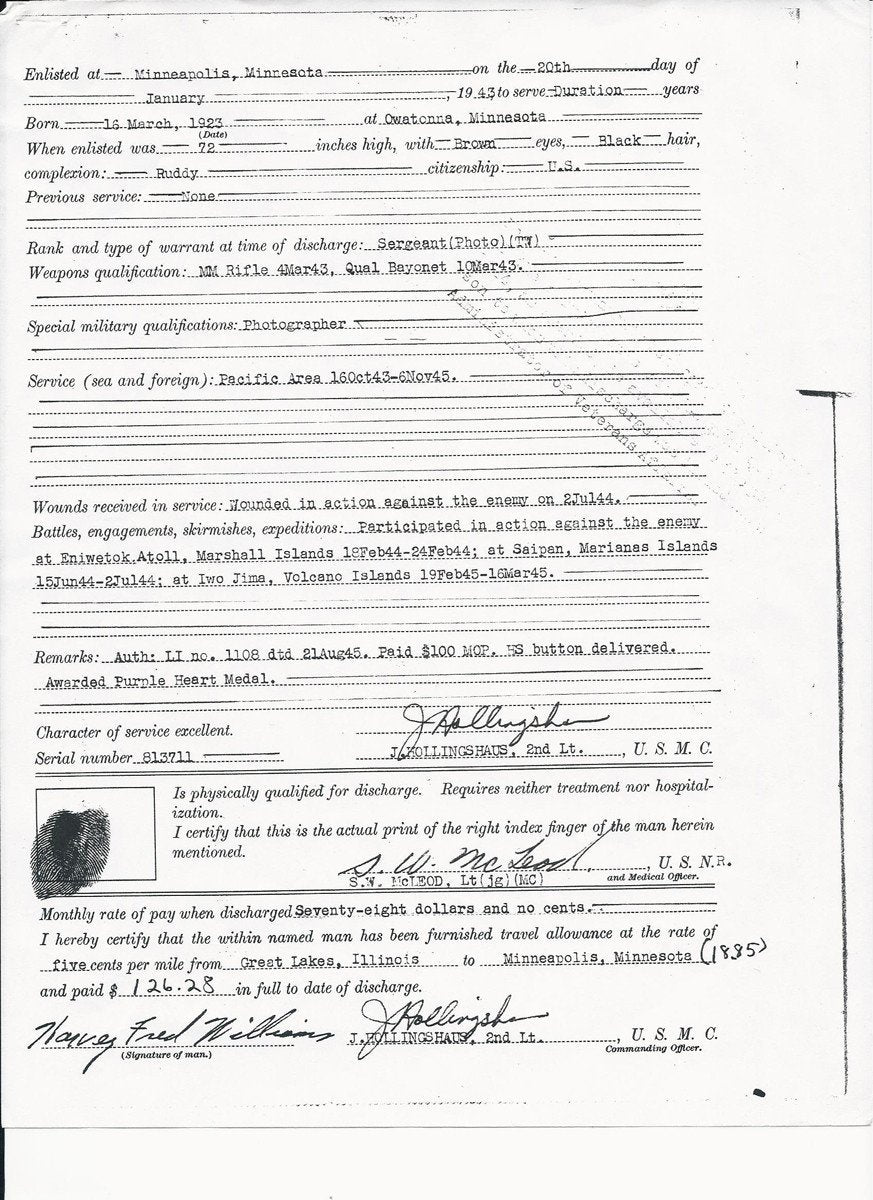 Enlisted at Minneapolis, Minnesota on the 20th day of
January, 1943 to serve Duration years
Born 16 March, 1923 at Owatonna, Minnesota
(Date)
When enlisted was 72 inches high, with Brown eyes, Black hair,
complexion: Ruddy citizenship: U.S.
Previous service: None
Rank and type of warrant at time of discharge: Sergeant(Photo)(TW)
Weapons qualification: MM Rifle 4Mar43, Qual Bayonet 10Mar43.
Special military qualifications: Photographer
Service (sea and foreign): Pacific Area 16Oct43-6Nov45.
of Veterans
Wounds received in service: Wounded in action against the enemy on 2Jul44.
Battles, engagements, skirmishes, expeditions: Participated in action against the enemy
at Eniwetok Atoll, Marshall Islands 18Feb44-24Feb44; at Saipan, Marianas Islands
15Jun44-2Jul44; at Iwo Jima, Volcano Islands 19Feb45-16Mar45.
Remarks: Auth: LI no. 1108 dtd 21Aug45. Paid $100 MOP. HS button delivered.
Awarded Purple Heart Medal.
J Hollingshaus
Character of service excellent.
Serial number 813711 J.HOLLINGSHAUS, 2nd Lt. , U. S. M. C.
Is physically qualified for discharge. Requires neither treatment nor hospital-
ization.
I certify that this is the actual print of the right index finger of the man herein
mentioned.
S. W. McLeod, U. S. N.R.
S.W. McLEOD, Lt(jg)(MC) and Medical Officer.
Monthly rate of pay when discharged Seventy-eight dollars and no cents.
I hereby certify that the within named man has been furnished travel allowance at the rate of
five cents per mile from Great Lakes, Illinois to Minneapolis, Minnesota (1885)
and paid $ 126.28 in full to date of discharge.
J Hollingshaus
Harvey Fred Williams J.HOLLINGSHAUS, 2nd Lt. , U. S. M. C.
(Signature of man.) Commanding Officer.